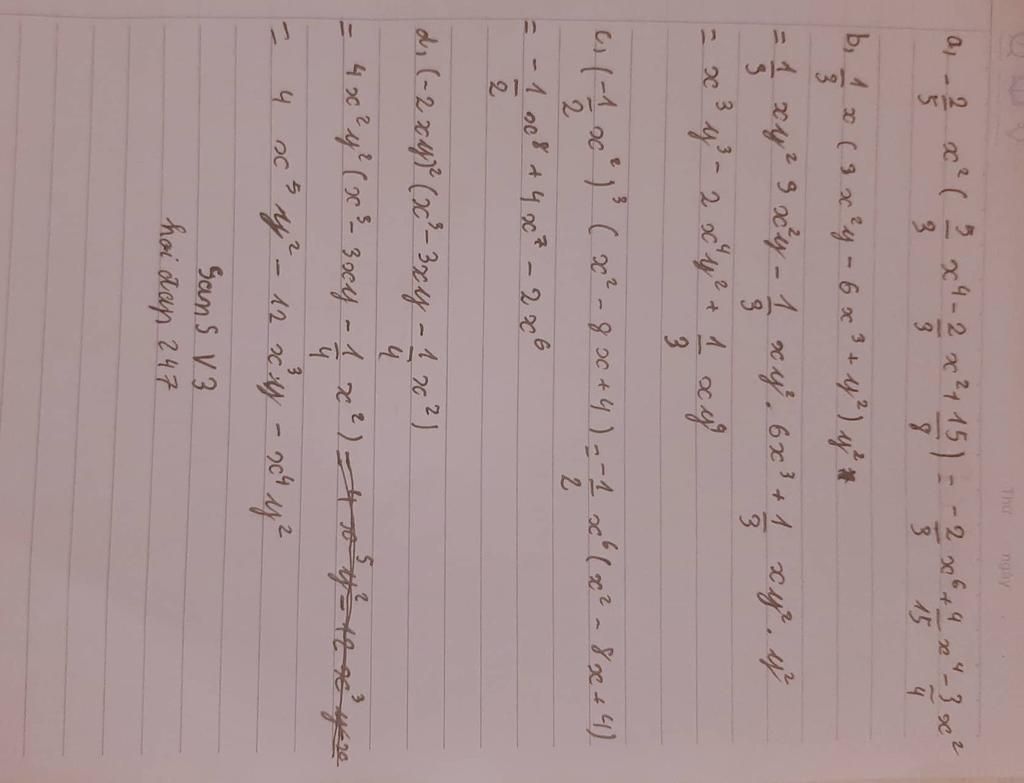 Thứ ngày
a, -2/5 x² (5/3 x⁴ - 2/3 x² + 15/8) = -2/3 x⁶ + 4/15 x⁴ - 3/4 x²
b, 1/3 x (3x²y - 6x³ + y²) y²
= 1/3 xy² 3x²y - 1/3 xy² . 6x³ + 1/3 xy² . y²
= x³y³ - 2x⁴y² + 1/3 xy⁴
c, (-1/2 x²)³ (x² - 8x + 4) = -1/2 x⁶ (x² - 8x + 4)
= -1/2 x⁸ + 4x⁷ - 2x⁶
d, (-2xy)² (x³ - 3xy - 1/4 x²)
= 4x²y² (x³ - 3xy - 1/4 x²) = 4x⁵y² - 12x³y - x
= 4 x⁵y² - 12x³y - x⁴y²
Sans V3
hoidap 247